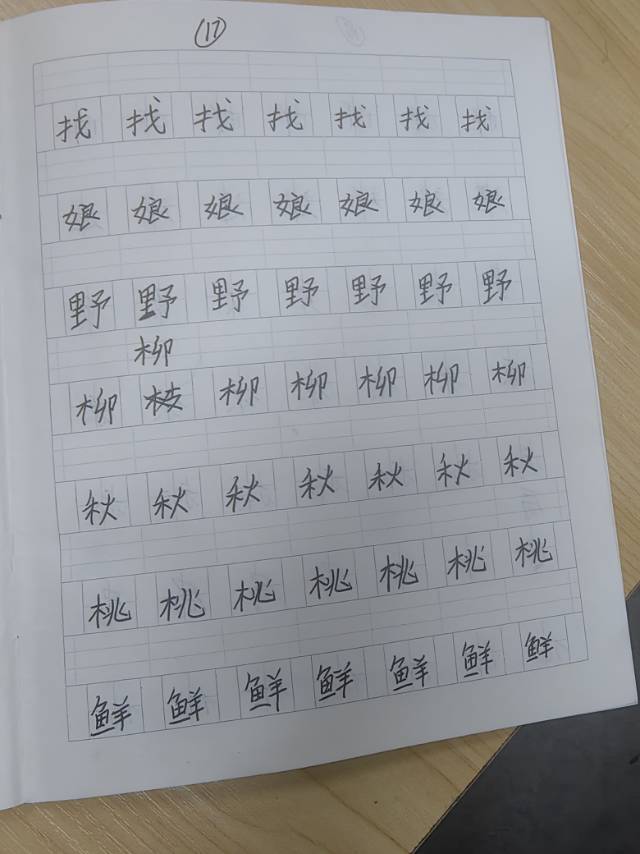 17
找 找 找 找 找 找 找
娘 娘 娘 娘 娘 娘 娘
野 野 野 野 野 野 野
柳
柳 枝 柳 柳 柳 柳 柳
秋 秋 秋 秋 秋 秋 秋
桃 桃 桃 桃 桃 桃 桃
鲜 鲜 鲜 鲜 鲜 鲜 鲜